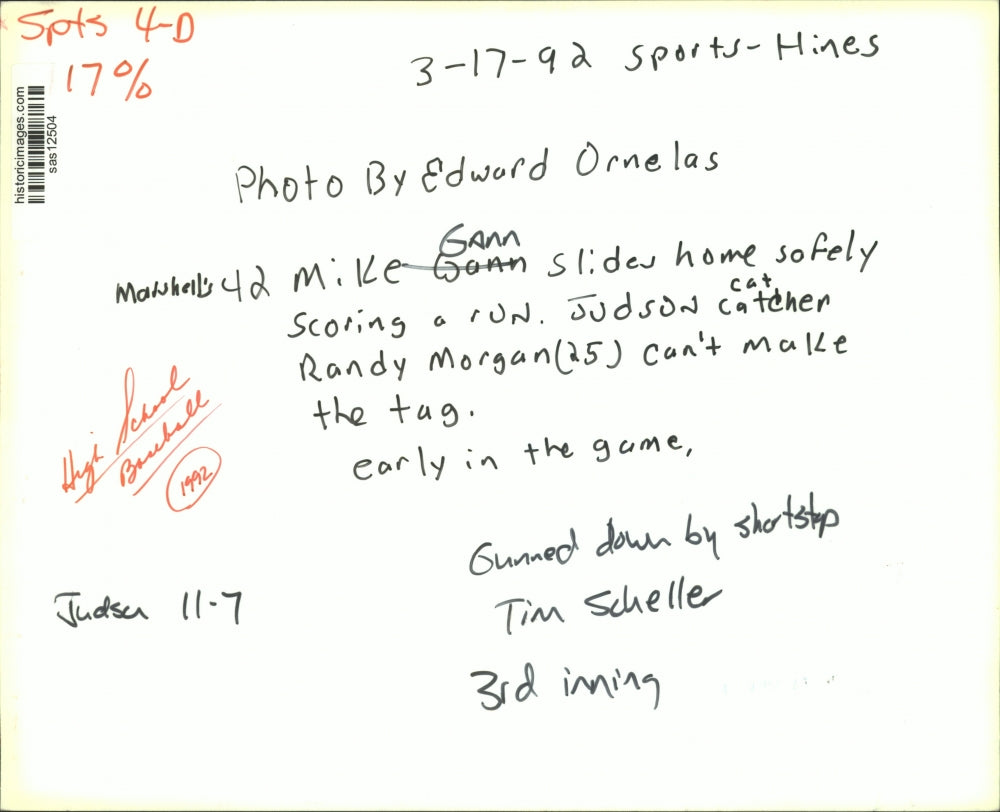 Spts 4-D
17%
3-17-92 sports-Hines
historicimages.com
sas12504
Photo By Edward Ornelas
Gann
Marshall's 42 Mike Gann slides home safely
cat
scoring a run. Judson catcher
Randy Morgan (25) can't make
the tag.
early in the game,
High School
Baseball
1992
Gunned down by shortstop
Tim Scheller
Judson 11-7
3rd inning